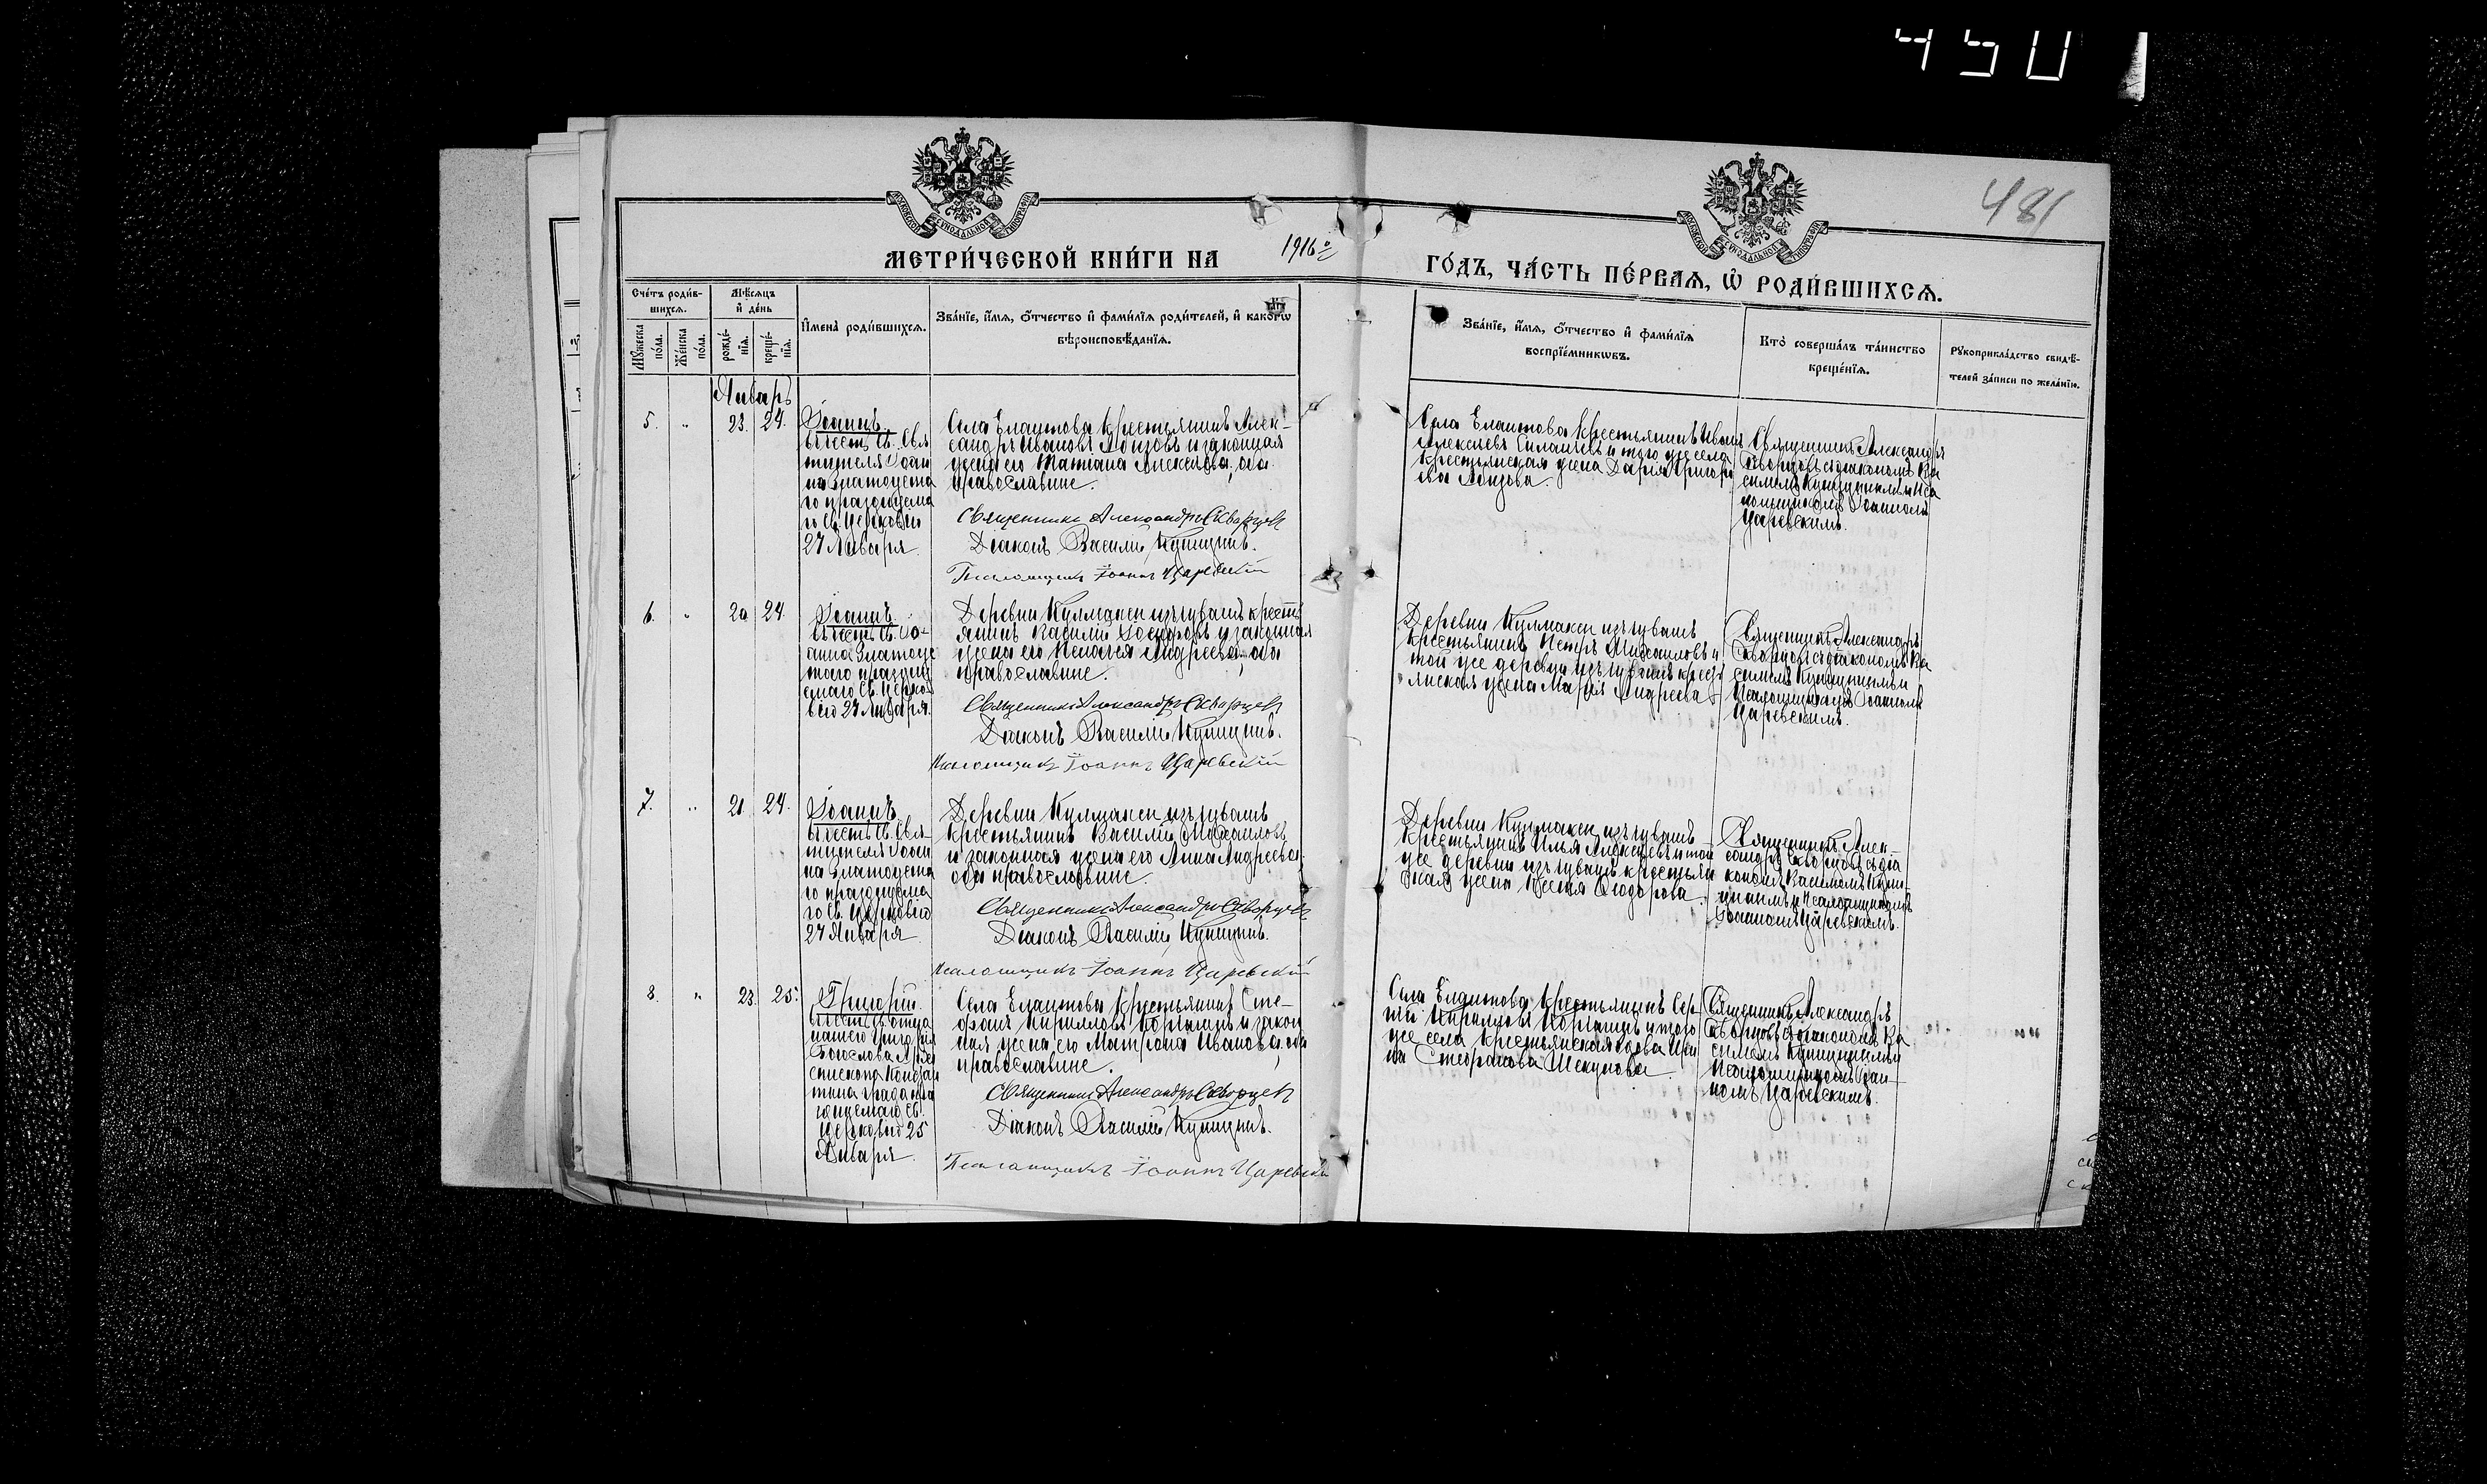 450
481
МОСКОВСКОЙ СѴНОДАЛЬНОЙ ТИПОГРАФІИ
МОСКОВСКОЙ СѴНОДАЛЬНОЙ ТИПОГРАФІИ
МЕТРИ́ЧЕСКОЙ КНИ́ГИ НА 1916 ГО́ДЪ, ЧА́СТЬ ПЕ́РВАѦ, Ѡ҆ РОДИ́ВШИХСѦ.
Сче́тъ роди́в-
шихсѧ.
Мѣ́сѧцъ
и҆ де́нь
Мꙋ́жеска
по́ла.
Же́нска
по́ла.
рожде́-
нїѧ.
креще́-
нїѧ.
И҆мена̀ роди́вшихсѧ.
Зва́нїе, и҆́мѧ, ѻ҆́тчество и҆ фами́лїѧ роди́телей, и҆ како́гѡ
вѣроисповѣ́данїѧ.
Зва́нїе, и҆́мѧ, ѻ҆́тчество и҆ фами́лїѧ
воспрїе́мникѡвъ.
Кто̀ соверша́лъ та́инство
креще́нїѧ.
Рꙋкоприкла́дство свидѣ́-
телей за́писи по жела́нїю.
Январь
5. " 23. 24.
Іоаннъ
въ честь Св. Свя
тителя Іоан
на Златоуста
го празднуема
го Св. Церковію
27 Января
Села Елаштова крестьянинъ Алек-
сандръ Ивановъ и законная
жена его Татиана Алексеева, оба
православные.
Священникъ Александръ Скворцовъ
Діаконъ Василій Купицынъ.
Псаломщикъ Іоаннъ Царевскій
Села Елаштова крестьянинъ Иванъ
Алексѣевъ и того же села
крестьянская жена Дарія Григорі
ева
Священникъ Александръ
Скворцовъ съ діакономъ Ва
силіемъ и Пса
ломщикомъ Іоанномъ
Царевскимъ.
6. " 20 24
Іоаннъ
въ честь Св. Іо-
анна Златоус
таго праздну
емаго Св. Церко
вію 27 Января.
Деревни Кулмаксы изъ чувашъ кресть
янинъ Василій Ѳеодоровъ и законная
жена его Пелагея Андреева, оба
православные.
Священникъ Александръ Скворцовъ
Діаконъ Василій Купицынъ.
Псаломщикъ Іоаннъ Царевскій
Деревни Кулмаксы изъ чувашъ
крестьянинъ Петръ Михаиловъ и
той же деревни изъ чувашъ кресть
янская жена Марія Андреева
Священникъ Александръ
Скворцовъ съ діакономъ Ва
силіемъ и
Псаломщикомъ Іоанномъ
Царевскимъ.
7. " 21 24.
Іоаннъ
въ честь Св. Свя-
тителя Іоан
на Златоуста
го празднуема
го Св. Церковію
27 Января
Деревни Кулмаксы изъ чувашъ
крестьянинъ Василій Михаиловъ
и законная жена его Анна Андреева
оба православные.
Священникъ Александръ Скворцовъ
Діаконъ Василій Купицынъ.
Псаломщикъ Іоаннъ Царевскій
Деревни Кулмаксы изъ чувашъ
крестьянинъ Илья Алексѣевъ и той
же деревни изъ чувашъ крестьян
ская жена Ксенія Ѳеодорова.
Священникъ Алек-
сандръ Скворцовъ съ діа
кономъ Василіемъ
и Псаломщикомъ
Іоанномъ Царевскимъ.
8. " 23. 25.
Григорій
въ честь Св. отца
нашего Григорія
Богослова Архі
епископа Констан
тина града пра
зднуемаго Св.
Церковію 25
Января.
Села Елаштова крестьянинъ Сте-
фанъ Кирилловъ и закон
ная жена его Матрона Иванова, оба
православные.
Священникъ Александръ Скворцовъ
Діаконъ Василій Купицынъ.
Псаломщикъ Іоаннъ Царевскій
Села Елаштова крестьянинъ Сер
гій Кирилловъ и того
же села крестьянская
Стефанова
Священникъ Александръ
Скворцовъ съ діакономъ Ва
силіемъ и
Псаломщикомъ Іоан-
номъ Царевскимъ.